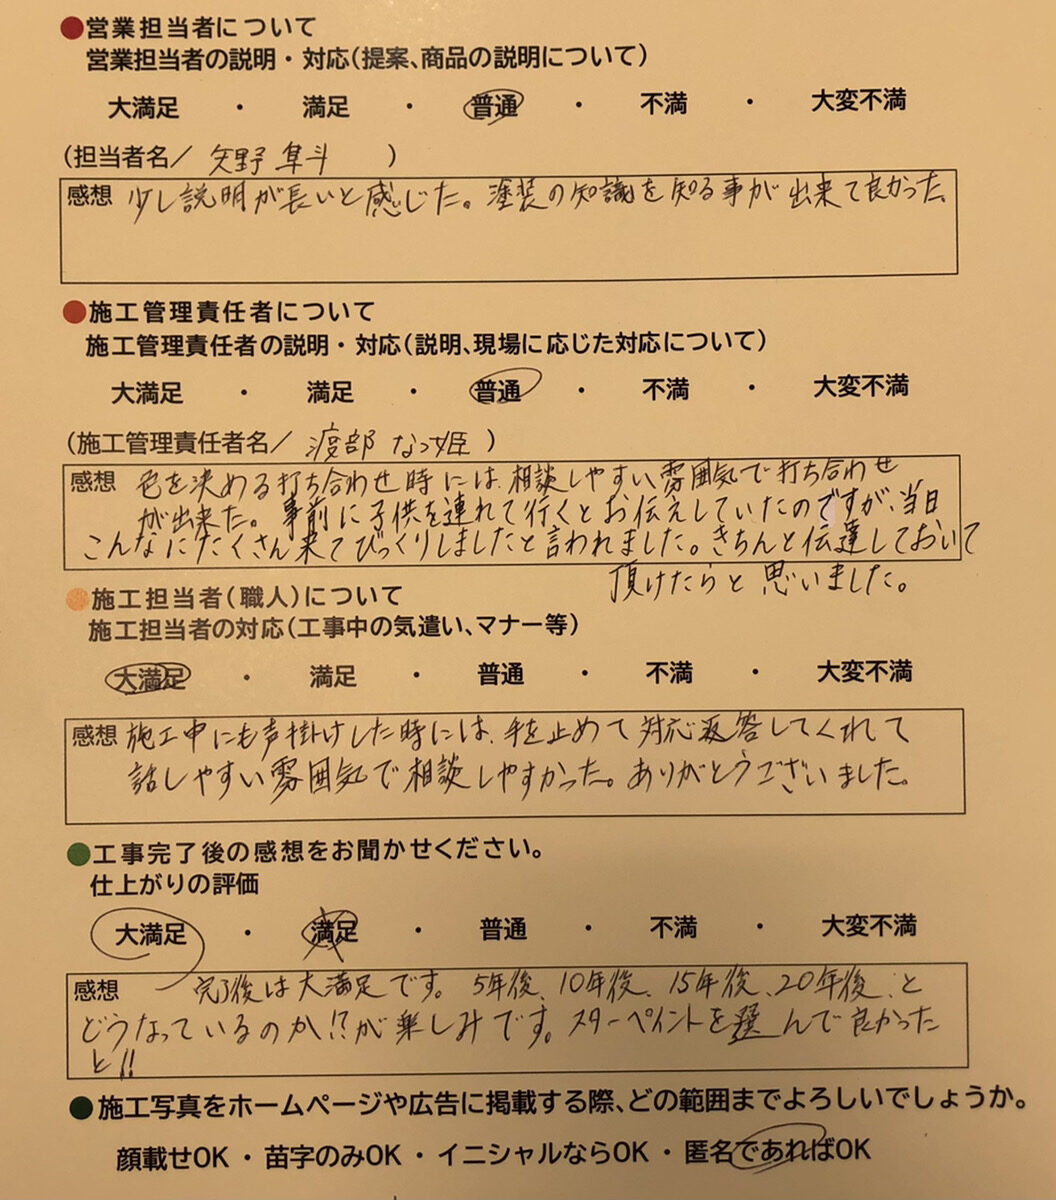 ●営業担当者について
営業担当者の説明・対応(提案、商品の説明について)
大満足 ・ 満足 ・ 普通 ・ 不満 ・ 大変不満
(担当者名/ 矢野 隼斗 )
感想 少し説明が長いと感じた。塗装の知識を知る事が出来て良かった。
●施工管理責任者について
施工管理責任者の説明・対応(説明、現場に応じた対応について)
大満足 ・ 満足 ・ 普通 ・ 不満 ・ 大変不満
(施工管理責任者名/ 渡部 なつ姫 )
感想 色を決める打ち合わせ時には、相談しやすい雰囲気で打ち合わせ
が出来た。事前に子供を連れて行くとお伝えしていたのですが、当日
こんなにたくさん来てびっくりしましたと言われました。きちんと伝達しておいて
頂けたらと思いました。
●施工担当者(職人)について
施工担当者の対応(工事中の気遣い、マナー等)
大満足 ・ 満足 ・ 普通 ・ 不満 ・ 大変不満
感想 施工中にも声掛けした時には、手を止めて対応返答してくれて
話しやすい雰囲気で相談しやすかった。ありがとうございました。
●工事完了後の感想をお聞かせください。
仕上がりの評価
大満足 ・ 満足 ・ 普通 ・ 不満 ・ 大変不満
感想 完了後は大満足です。5年後、10年後、15年後、20年後、と
どうなっているのか!?が楽しみです。スターペイントを選んで良かった
と!!
●施工写真をホームページや広告に掲載する際、どの範囲までよろしいでしょうか。
顔載せOK ・ 苗字のみOK ・ イニシャルならOK ・ 匿名であればOK